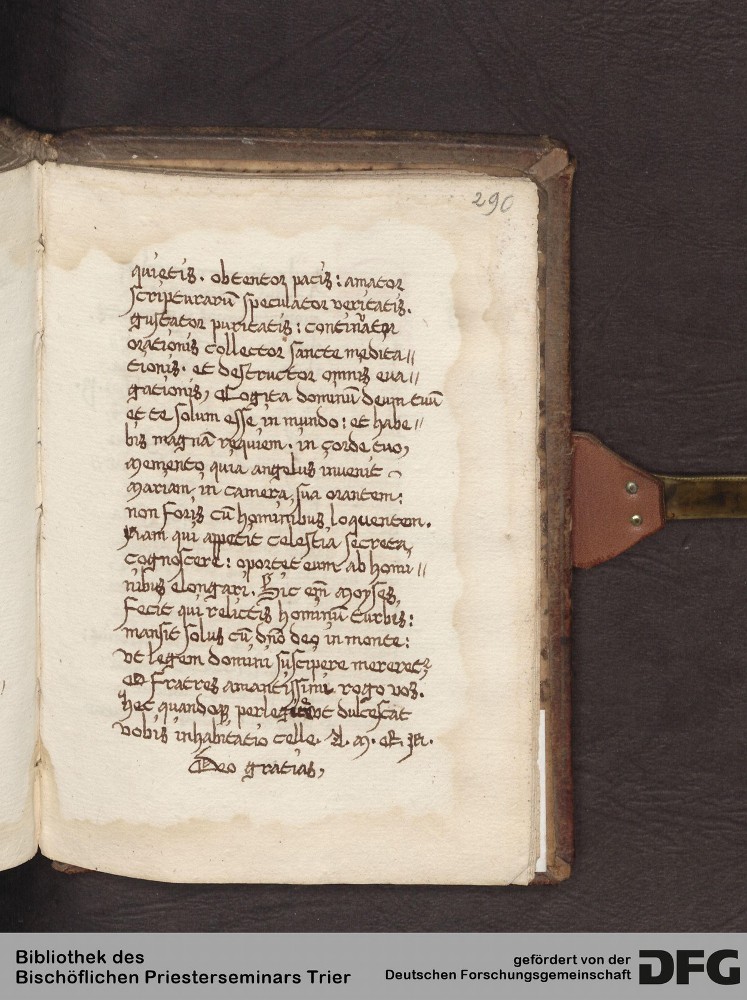 290
quietis. obtentor pacis: amator
scripturarū speculator veritatis.
gustator puritatis: continuator
orationis collector sancte medita//
tionis. et destructor omnis eua//
gationis, Cogita dominū deum tuū
et te solum esse in mundo: et habe//
bis magnā requiem. in corde tuo,
memento quia angelus inuenit
mariam in camera sua orantem:
non foris cū hominibus loquentem.
Nam qui appetit celestia secreta,
cognoscere: oportet eum ab homi//
nibus elongari. Sic em̄ moyses,
fecit qui relictis hominū turbis:
mansit solus cū dn̄o deo in monte:
vt legem domini suscipere mereretꝛ
O fratres amantissimi rogo vos.
hec quandoqꝫ perlegite vt dulcescat
vobis inhabitatio celle. A. M. E. N.
Deo gratias,
Bibliothek des
Bischöflichen Priesterseminars Trier
gefördert von der
Deutschen Forschungsgemeinschaft
DFG